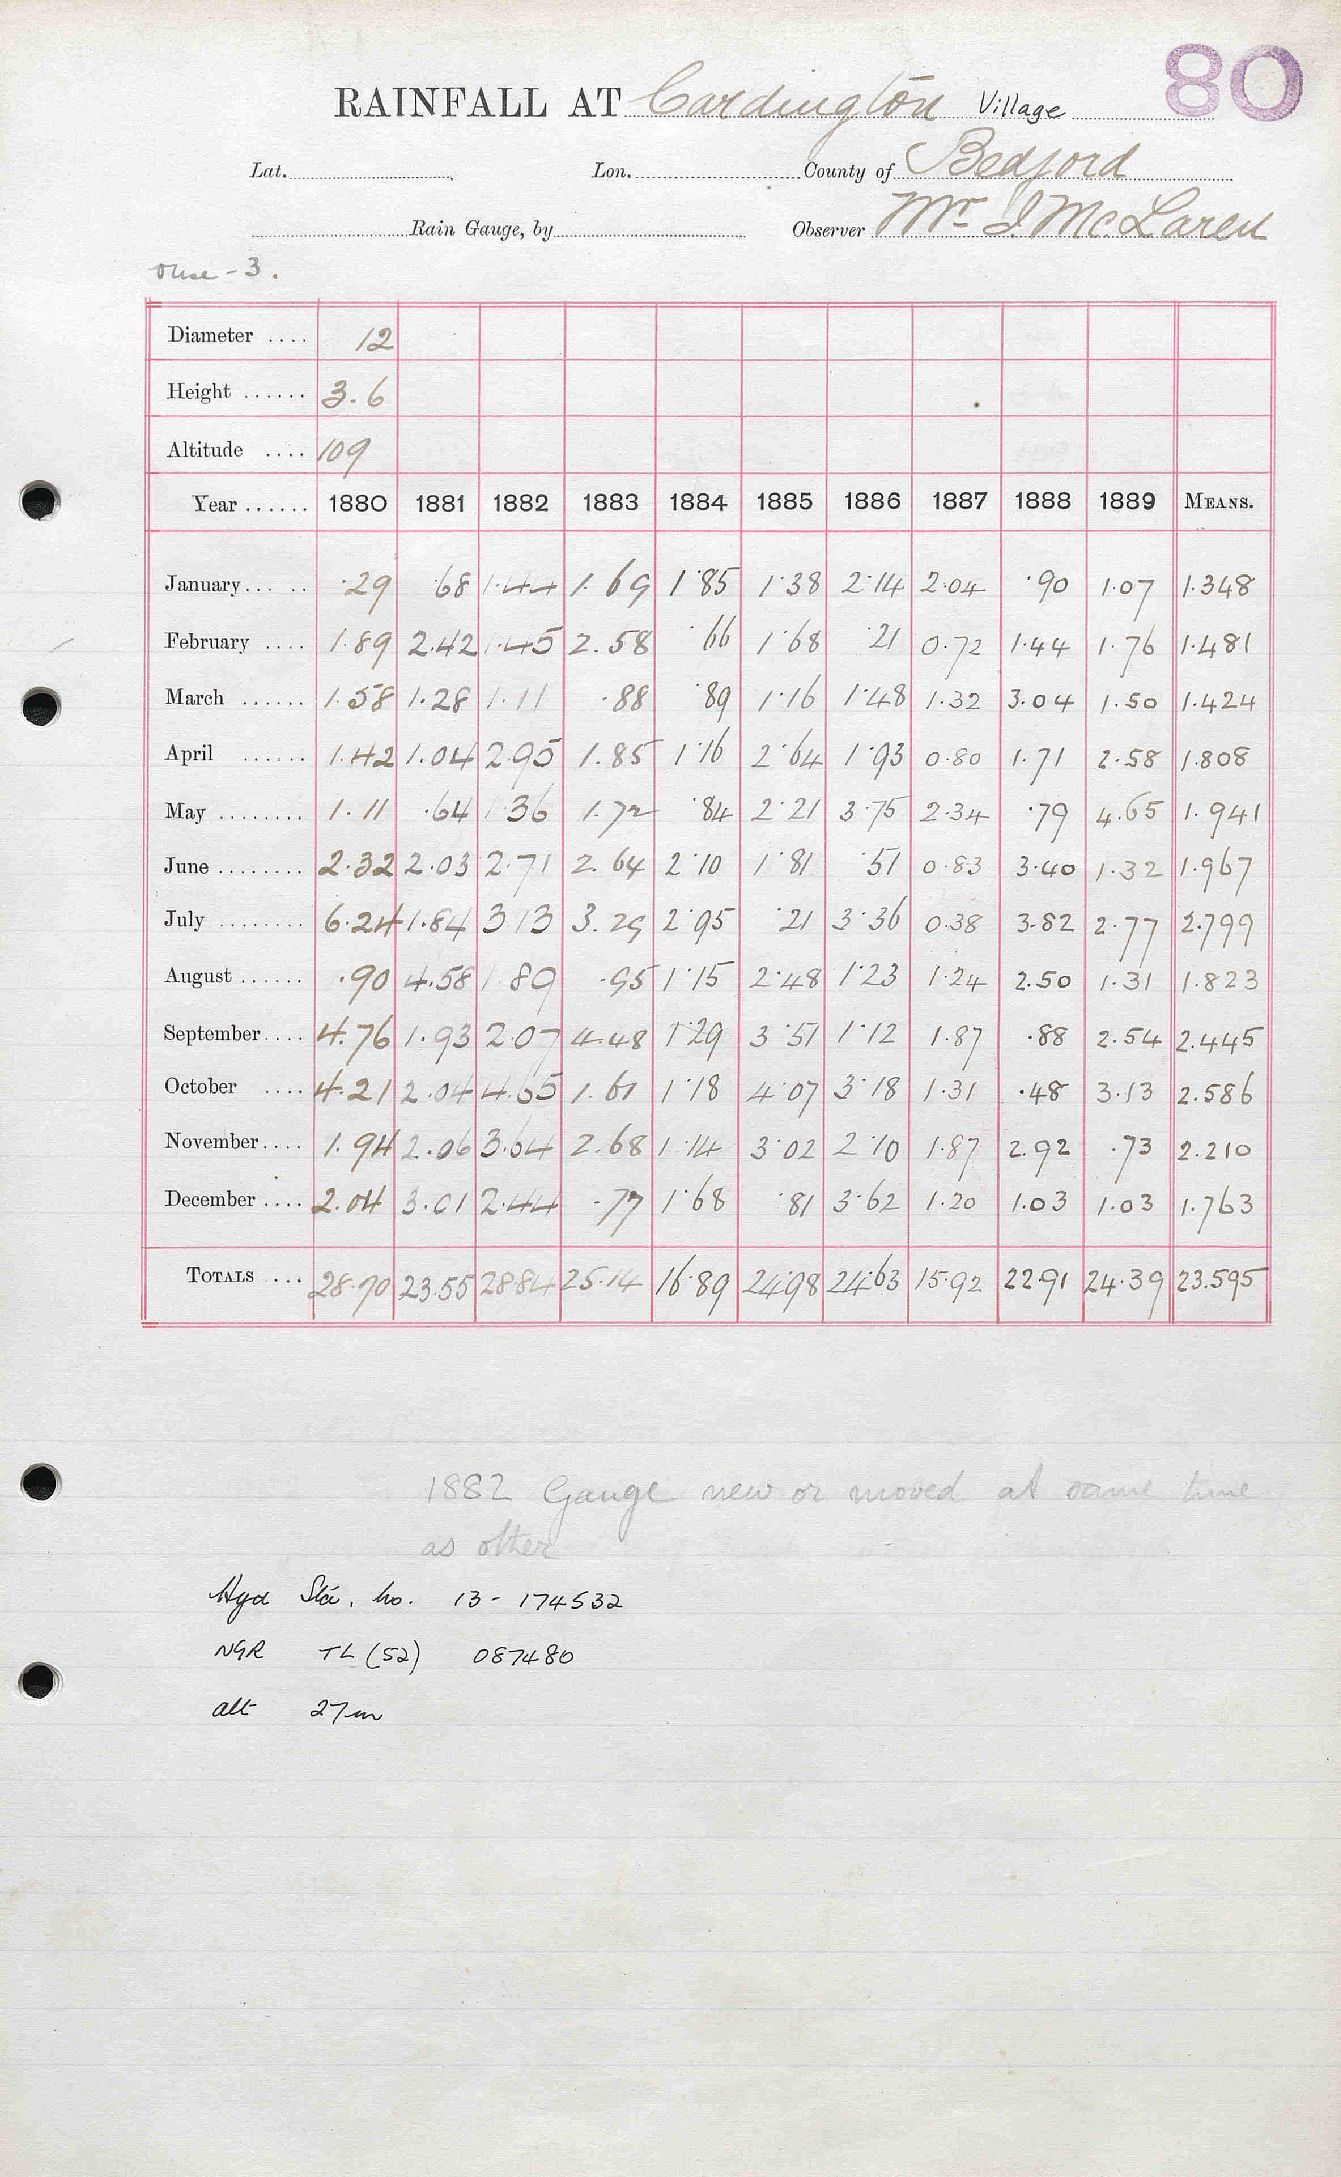 80
RAINFALL AT Cardington Village
Lat. Lon. County of Bedford
Rain Gauge, by Observer Mr J. McLaren
Ouse - 3.
Diameter .... 12
Height ...... 3.6
Altitude .... 109
Year ...... 1880 1881 1882 1883 1884 1885 1886 1887 1888 1889 MEANS.
January... .. ·29 ·68 1·44 1.69 1·85 1·38 2·14 2·04 ·90 1·07 1·348
February .... 1·89 2·42 1·45 2.58 ·66 1·68 ·21 0·72 1·44 1·76 1·481
March ...... 1·58 1·28 1·11 ·88 ·89 1·16 1·48 1·32 3·04 1·50 1·424
April ...... 1·42 1·04 2·95 1.85 1·16 2·64 1·93 0·80 1·71 2·58 1·808
May ........ 1·11 ·64 1·36 1.72 ·84 2·21 3·75 2·34 ·79 4·65 1·941
June ........ 2·32 2·03 2·71 2.64 2·10 1·81 ·51 0·83 3·40 1·32 1·967
July ........ 6·24 1·84 3·13 3.29 2·95 ·21 3·36 0·38 3·82 2·77 2·799
August ...... ·90 4·58 1·89 ·95 1·15 2·48 1·23 1·24 2·50 1·31 1·823
September.... 4·76 1·93 2·07 4·48 1·29 3·51 1·12 1·87 ·88 2·54 2·445
October .... 4·21 2·04 4·65 1.61 1·18 4·07 3·18 1·31 ·48 3·13 2·586
November.... 1·94 2·06 3·64 2·68 1·14 3·02 2·10 1·87 2·92 ·73 2·210
December .... 2·04 3·01 2·44 ·77 1·68 ·81 3·62 1·20 1·03 1·03 1·763
TOTALS ... 28·70 23·55 28·84 25·14 16·89 24·98 24·63 15·92 22·91 24·39 23·595
1882 Gauge new or moved at same time
as other
Hyd Sta. no. 13 - 174532
NGR TL (52) 087480
alt 27m